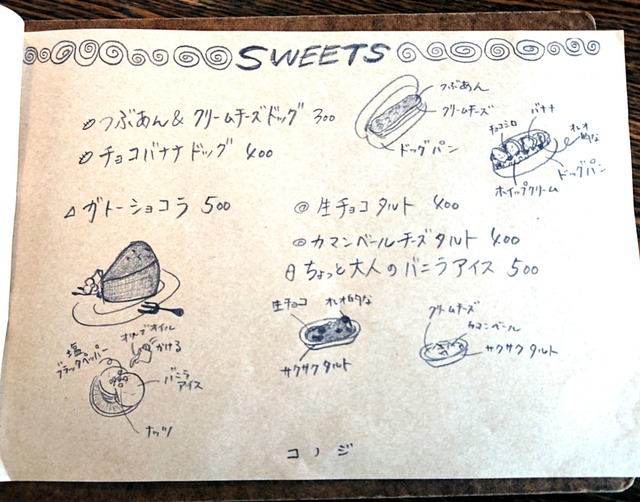 SWEETS
つぶあん& クリームチーズドッグ 300
チョコバナナドッグ 400
つぶあん
クリームチーズ
ドッグパン
チョコシロ
バナナ
オレオ的な
ドッグパン
ホイップクリーム
ガトーショコラ 500
生チョコタルト 400
カマンベールチーズタルト 400
ちょっと大人のバニラアイス 500
生チョコ
オレオ的な
サクサクタルト
クリームチーズ
カマンベール
サクサクタルト
オリーブオイル
かける
塩
ブラックペッパー
バニラ
アイス
ナッツ
コノジ